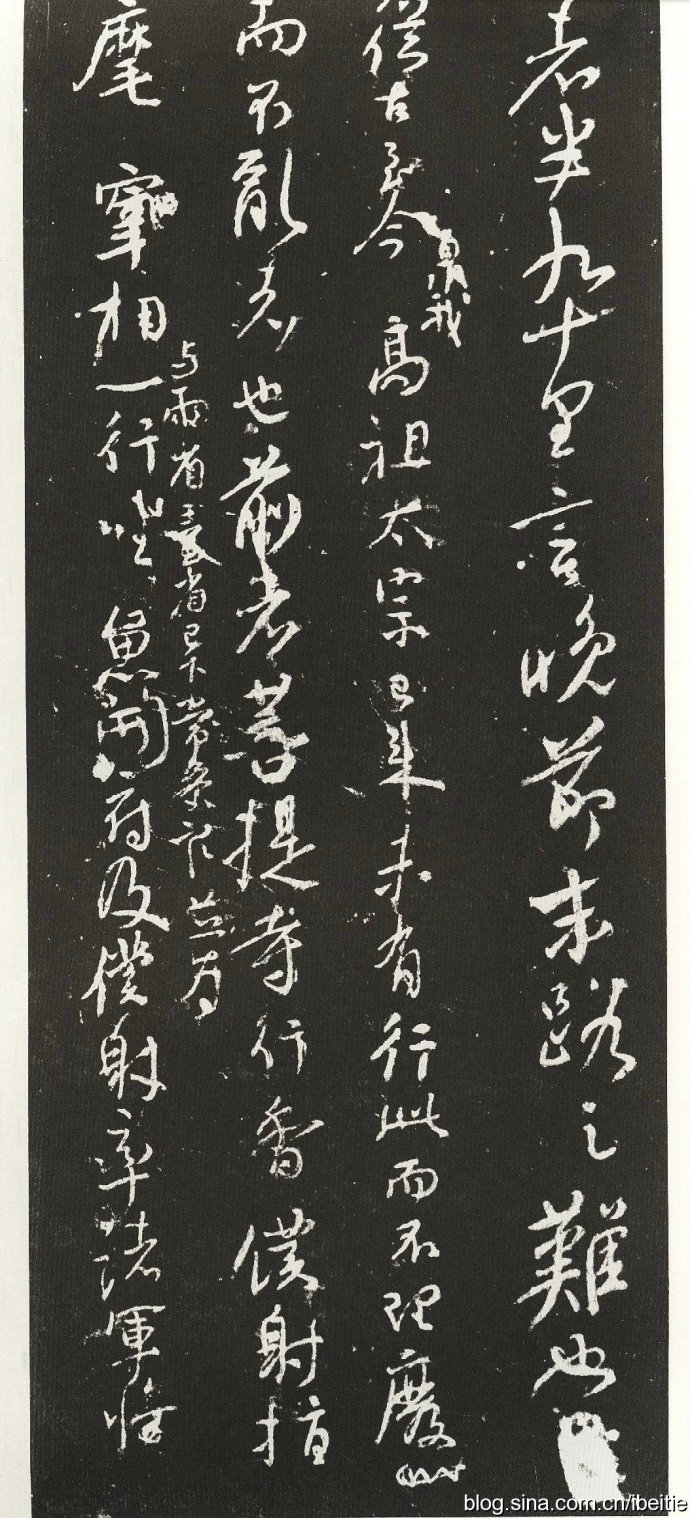 者半九十里言晚節末路之難也
從古至今
泉我
高祖太宗已來未有行此而不理廢
而不亂者也前者菩提寺行香僕射指
麾宰相
与兩省臺省已下常參官並為
一行坐魚開府及僕射率諸軍將
blog.sina.com.cn/ibeitie